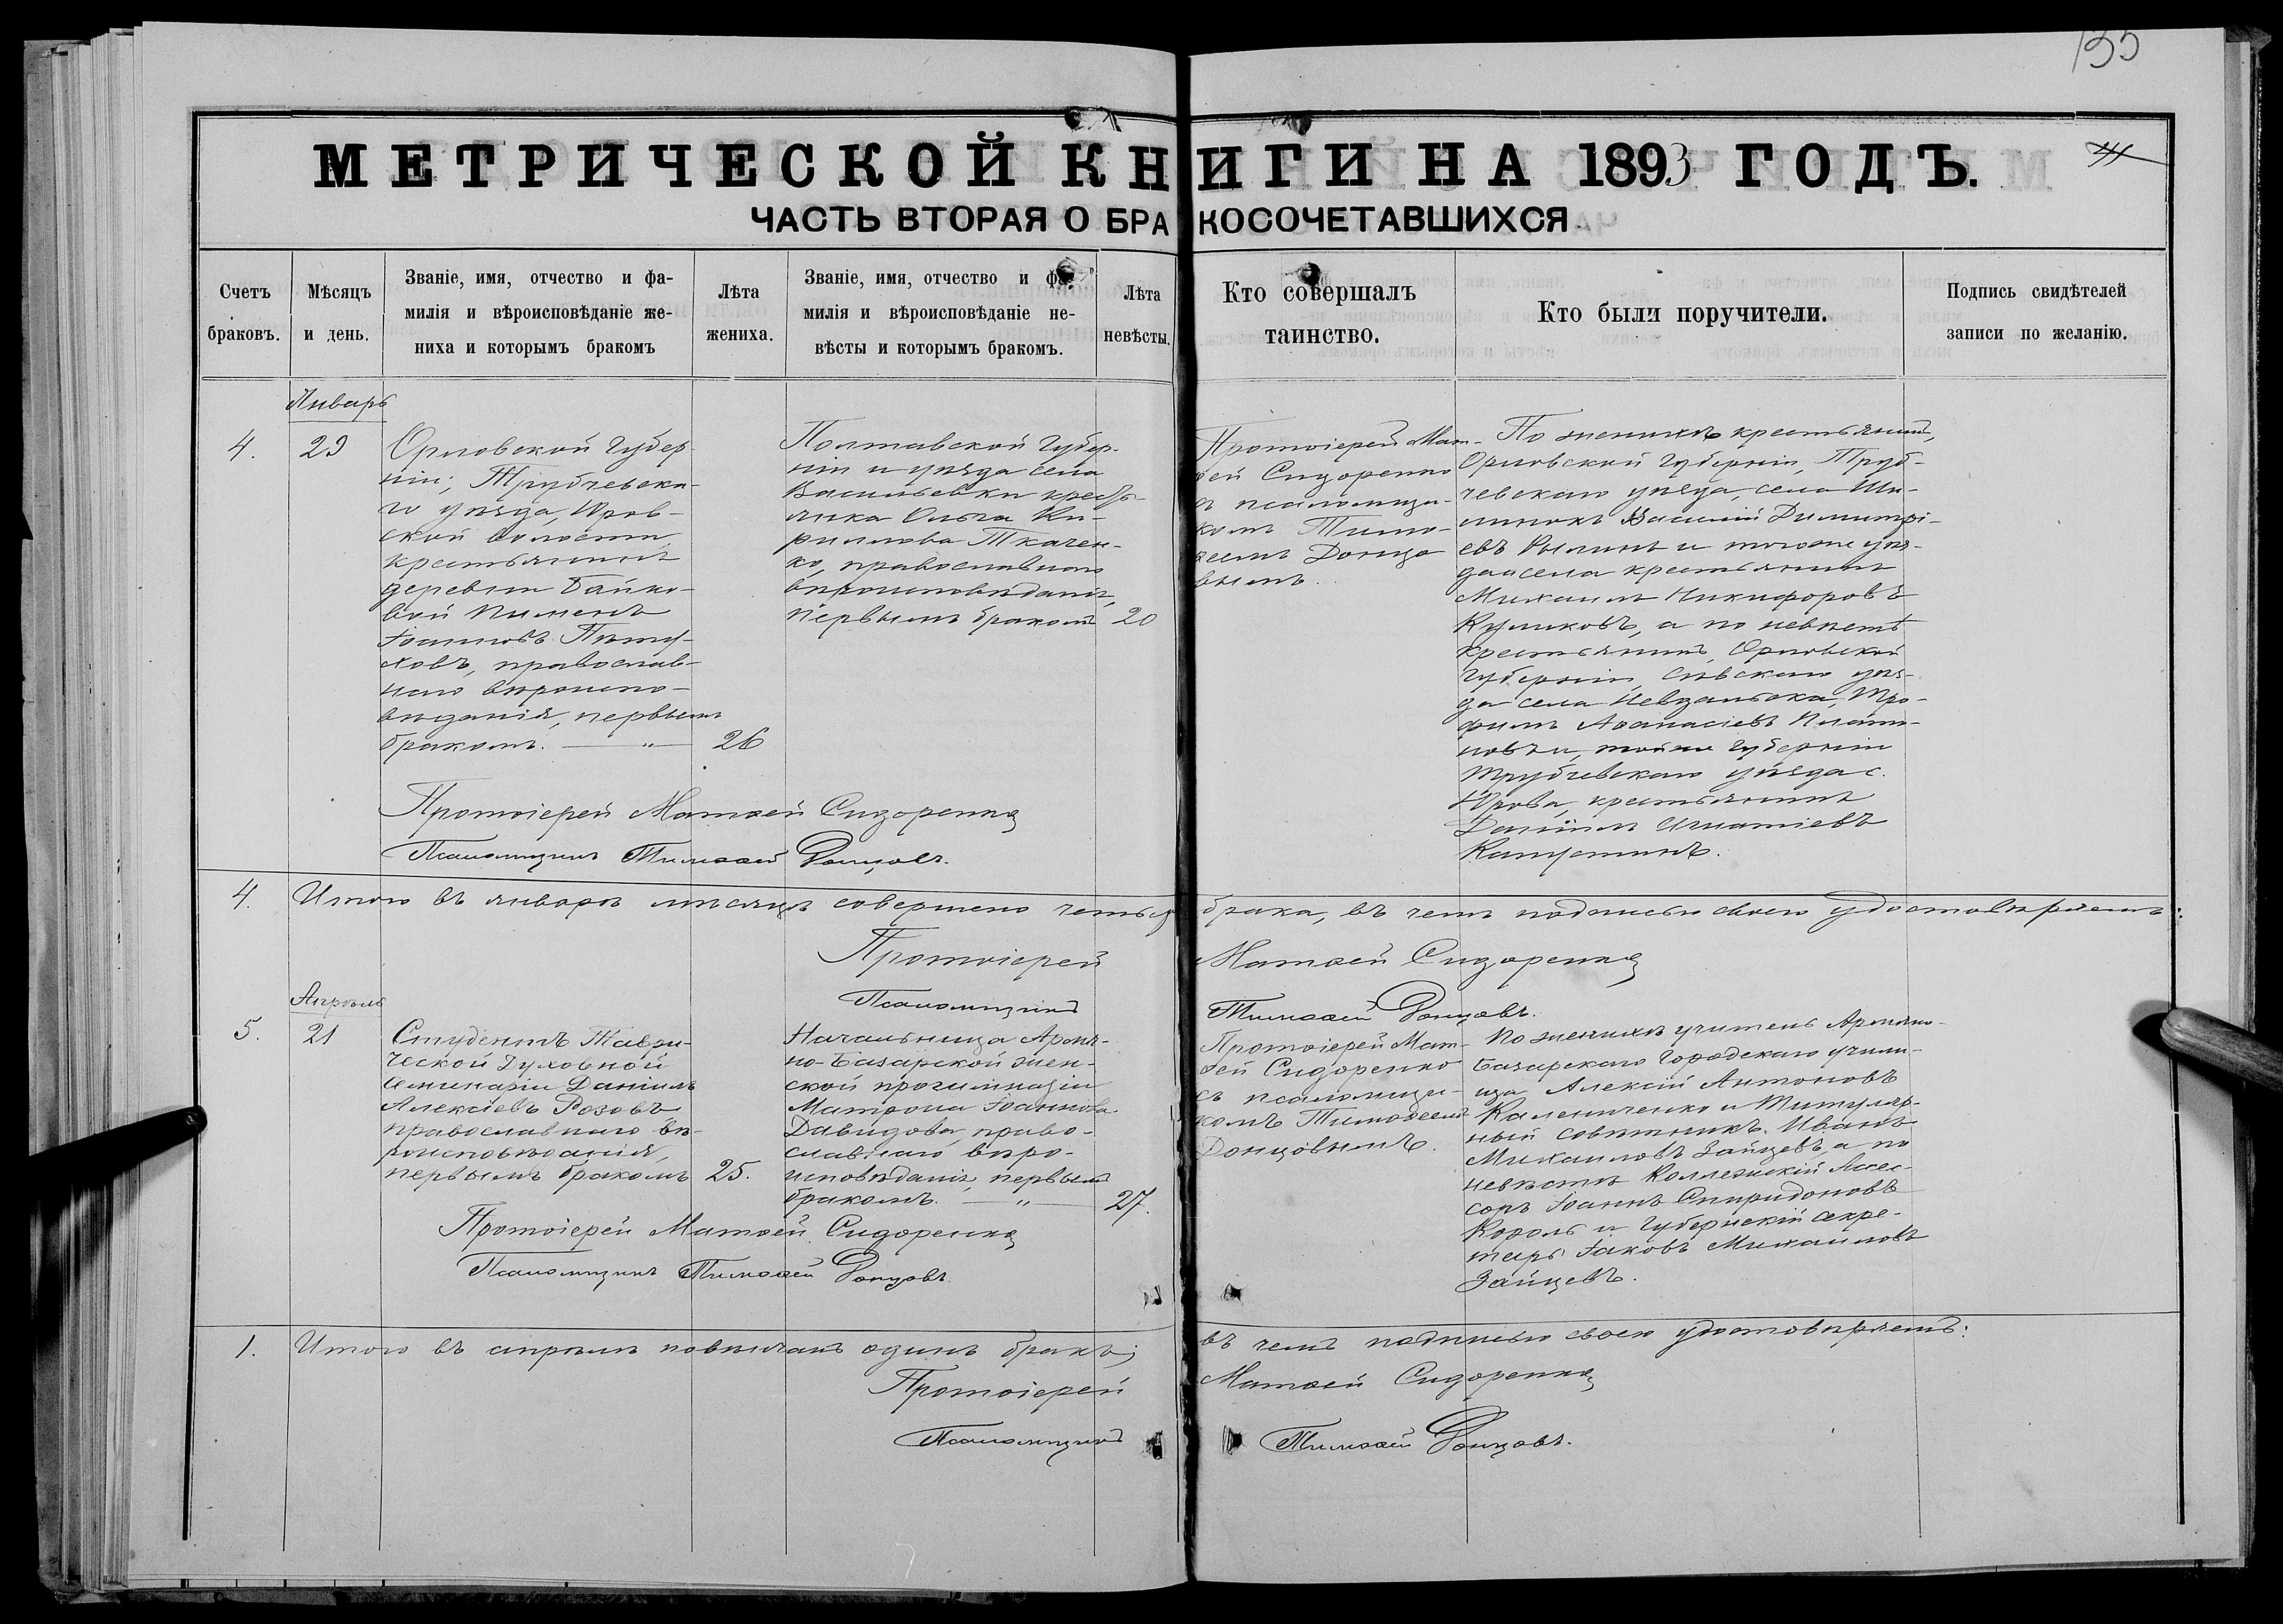 135
МЕТРИЧЕСКОЙ КНИГИ НА 1893 ГОДЪ.
ЧАСТЬ ВТОРАЯ О БРАКОСОЧЕТАВШИХСЯ.
Счетъ
браковъ.
Мѣсяцъ
и день.
Званіе, имя, отчество и фа-
милія и вѣроисповѣданіе же-
ниха и которымъ бракомъ
Лѣта
жениха.
Званіе, имя, отчество и фа-
милія и вѣроисповѣданіе не-
вѣсты и которымъ бракомъ.
Лѣта
невѣсты.
Кто совершалъ
таинство.
Кто были поручители.
Подпись свидѣтелей
записи по желанію.
Январь
4.
29
Орловской Губер-
ніи, Трубчевска-
го уѣзда, Юров-
ской волости
крестьянинъ
деревни Байко-
вой Пименъ
Іоанновъ Пѣту-
ховъ, православ-
наго вѣроиспо-
вѣданія, первымъ
бракомъ. — „ — 26
Полтавской Губер-
ніи и уѣзда села
Васильевки кресть-
янка Ольга Ки-
риллова Ткачен-
ко, православнаго
вѣроисповѣданія,
первымъ бракомъ 20
Протоіерей Мат-
ѳей Сидоренко
съ псаломщи-
комъ Тимо-
ѳеемъ Донцо
вымъ.
По женихѣ крестьянинъ,
Орловской Губерніи, Труб-
чевскаго уѣзда, села
Василій Димитрі-
евъ и тогоже уѣз-
да и села крестьянинъ
Михаилъ Никифоровъ
Куликовъ, а по невѣстѣ
крестьянинъ, Орловской
Губерніи, Сѣвскаго уѣз-
да села Невдальска, Тро-
фимъ Аѳанасіевъ Плато-
новъ и, той же губерніи
Трубчевскаго уѣзда с.
Юрова, крестьянинъ
Даніилъ Игнатіевъ
Капустинъ.
Протоіерей Матѳей Сидоренко
Псаломщикъ Тимоѳей Донцовъ.
4. Итого въ январѣ мѣсяцѣ совершено четыре брака, въ чемъ подписью своею удостовѣряемъ:
Протоіерей Матѳей Сидоренко
Псаломщикъ Тимоѳей Донцовъ.
Апрѣль
5.
21
Студентъ Таври-
ческой Духовной
Семинаріи Даніилъ
Алексіевъ Розовъ
православнаго вѣ-
роисповѣданія,
первымъ бракомъ 25.
Начальница Армя-
но-Базарской жен-
ской прогимназіи
Матрона Іоаннова
Давидова, право-
славнаго вѣро-
исповѣданія, первымъ
бракомъ. — „ — 27.
Протоіерей Мат-
ѳей Сидоренко
съ псаломщи-
комъ Тимоѳеемъ
Донцовымъ.
По женихѣ учитель Армяно-
Базарскаго Городскаго учили-
ща Алексій Антоновъ
Калениченко и Титуляр-
ный совѣтникъ Иванъ
Михаиловъ Зайцевъ, а по
невѣстѣ Коллежскій Ассес-
соръ Іоаннъ Спиридоновъ
Король и Губернскій секре-
тарь Іаковъ Михаиловъ
Зайцевъ.
Протоіерей Матѳей Сидоренко
Псаломщикъ Тимоѳей Донцовъ.
1. Итого въ апрѣлѣ повѣнчанъ одинъ бракъ; въ чемъ подписью своею удостовѣряемъ:
Протоіерей Матѳей Сидоренко
Псаломщикъ Тимоѳей Донцовъ.